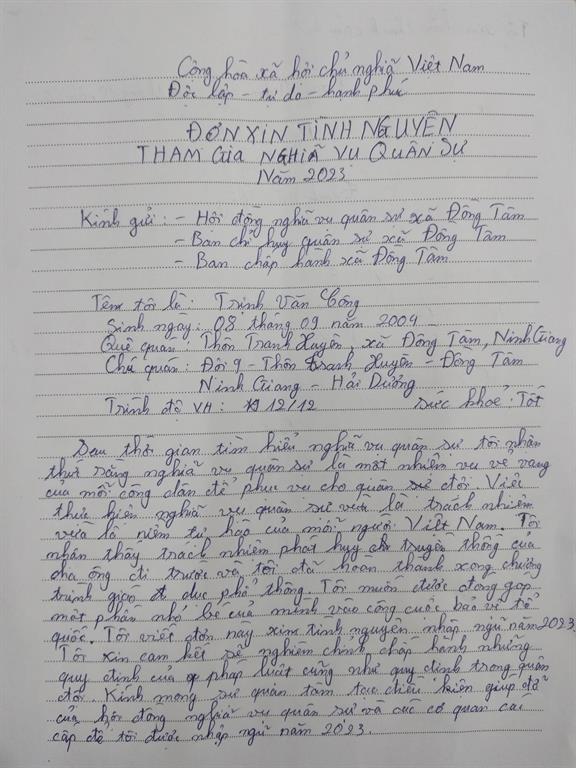 Cộng hòa xã hội chủ nghĩa Việt Nam
Độc lập - tự do - hạnh phúc
ĐƠN XIN TÌNH NGUYỆN
THAM GIA NGHĨA VỤ QUÂN SỰ
Năm 2023
Kính gửi: - Hội đồng nghĩa vụ quân sự xã Đồng Tâm
- Ban chỉ huy quân sự xã Đồng Tâm
- Ban chấp hành xã Đồng Tâm
Tên tôi là: Trịnh Văn Công
Sinh ngày: 08 tháng 09 năm 2004
Quê quán: Thôn Tranh Xuyên, xã Đồng Tâm, Ninh Giang
Chú quán: Đội 9 - Thôn Tranh Xuyên - Đồng Tâm
Ninh Giang - Hải Dương
Trình độ VH: 12/12 Sức khoẻ: Tốt
Sau thời gian tìm hiểu nghĩa vụ quân sự tôi nhận
thức rằng nghĩa vụ quân sự là một nhiệm vụ vẻ vang
của mỗi công dân để phục vụ cho quân sự đội. Việc
thực hiện nghĩa vụ quân sự vừa là trách nhiệm
vừa là niềm tự hào của mỗi người Việt Nam. Tôi
nhận thấy trách nhiệm phát huy truyền thống của
cha ông đi trước và tôi đã hoàn thành xong chương
trình giáo dục phổ thông. Tôi muốn được đóng góp
một phần nhỏ bé của mình vào công cuộc bảo vệ tổ
quốc. Tôi viết đơn này xin tình nguyện nhập ngũ năm 2023
Tôi xin cam kết sẽ nghiêm chỉnh chấp hành những
quy định của pháp luật cũng như quy định trong quân
đội. Kính mong sự quan tâm tạo điều kiện giúp đỡ
của hội đồng nghĩa vụ quân sự và các cơ quan các
cấp để tôi được nhập ngũ năm 2023.